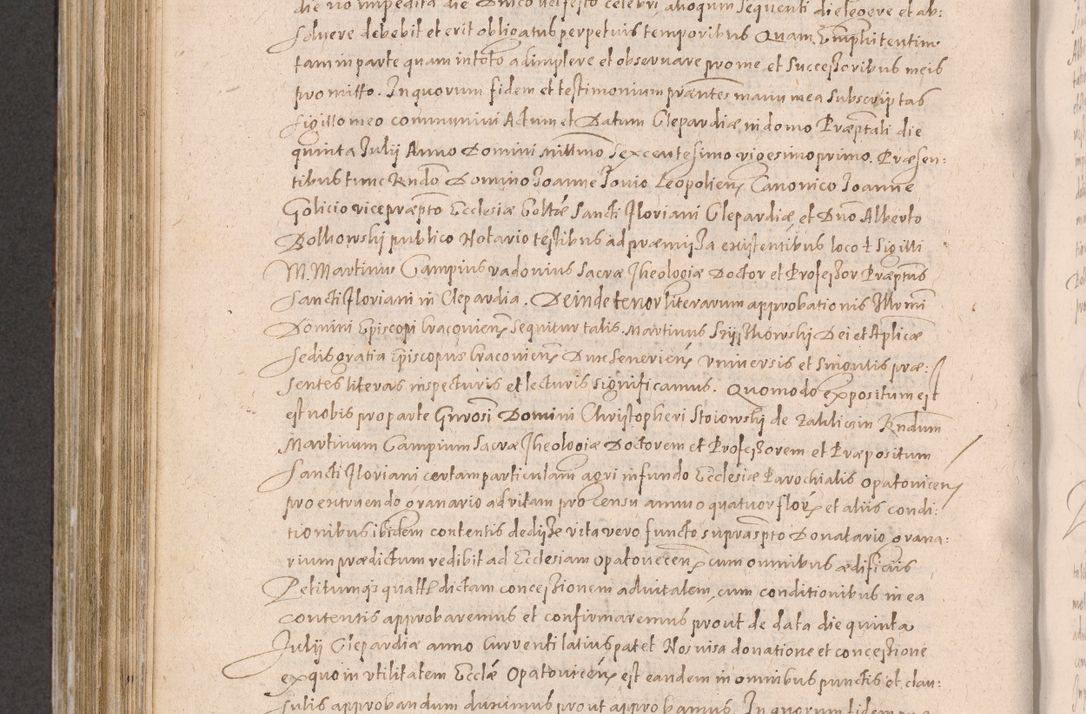 die no impedita die Dnico vel festo celebri, alioquin sequenti die legere et ab:
soluere debebit et erit obligatus perpetuis temporibus Quam
tam in parte quam in toto adimplere et obseruare pro me et Successoribus meis
promitto. In quorum fidem et testimonium præntes manu mea Subscriptas
sigillo meo communiui Actum et Datum Clepardiæ in domo Præptali die
quinta Julij Anno Domini millmo Sexcentesimo vigesimo primo. Præsen:
tibus tunc Rndo Domino Joanne Jouio Leopolien Canonico Joanne
Golicio vicepræpto Ecclesiæ Colltæ Sancti Floriani Clepardiæ et Dno Alberto
Dolhowski publico Notario testibus ad præmissa existentibus loco + Sigilli
M. Martinus Campius vadouius Sacræ Theologiæ Doctor et Professor Præptus
Sancti Floriani in Clepardia. Deinde tenor literarum approbationis Illrmi
Domini Episcopi Cracouien sequitur talis. Martinus Szyszkowski Dei et Aplicæ
sedis gratia Episcopus Cracouien Dux Seuerien vniuersis et singulis præ:
sentes literas inspecturis et lecturis significamus. Quomodo expositum est
est nobis pro parte Gnrosi Domini Christopheri Stoiowski de Rndum
Martinum Campium Sacræ Theologiæ Doctorem et Professorem et Præpositum
Sancti Floriani certam particulam agri in fundo Ecclesiæ Parochialis Opatouicen
pro extruendo granario ad vitam pro censu annuo quatuor floren et aliis condi:
tionibus ibidem contentis dedisse vita vero functo supraspto Donatario grana:
rium prædictum redibit ad Ecclesiam Opatouecen cum omnibus ædificiis
Petitumqs quatt dictam concessionem aduitalem, cum conditionibus in ea
contentis approbaremus et confirmaremus prout de data die quinta
Julij Clepardiæ anno currenti latius patet Nos visa donatione et concessione
ex quo in vtilitatem Ecclæ Opatouicen est eandem in omnibus punctis et clau:
sulis approbandum duximus prout approbamus. In quorum fidem